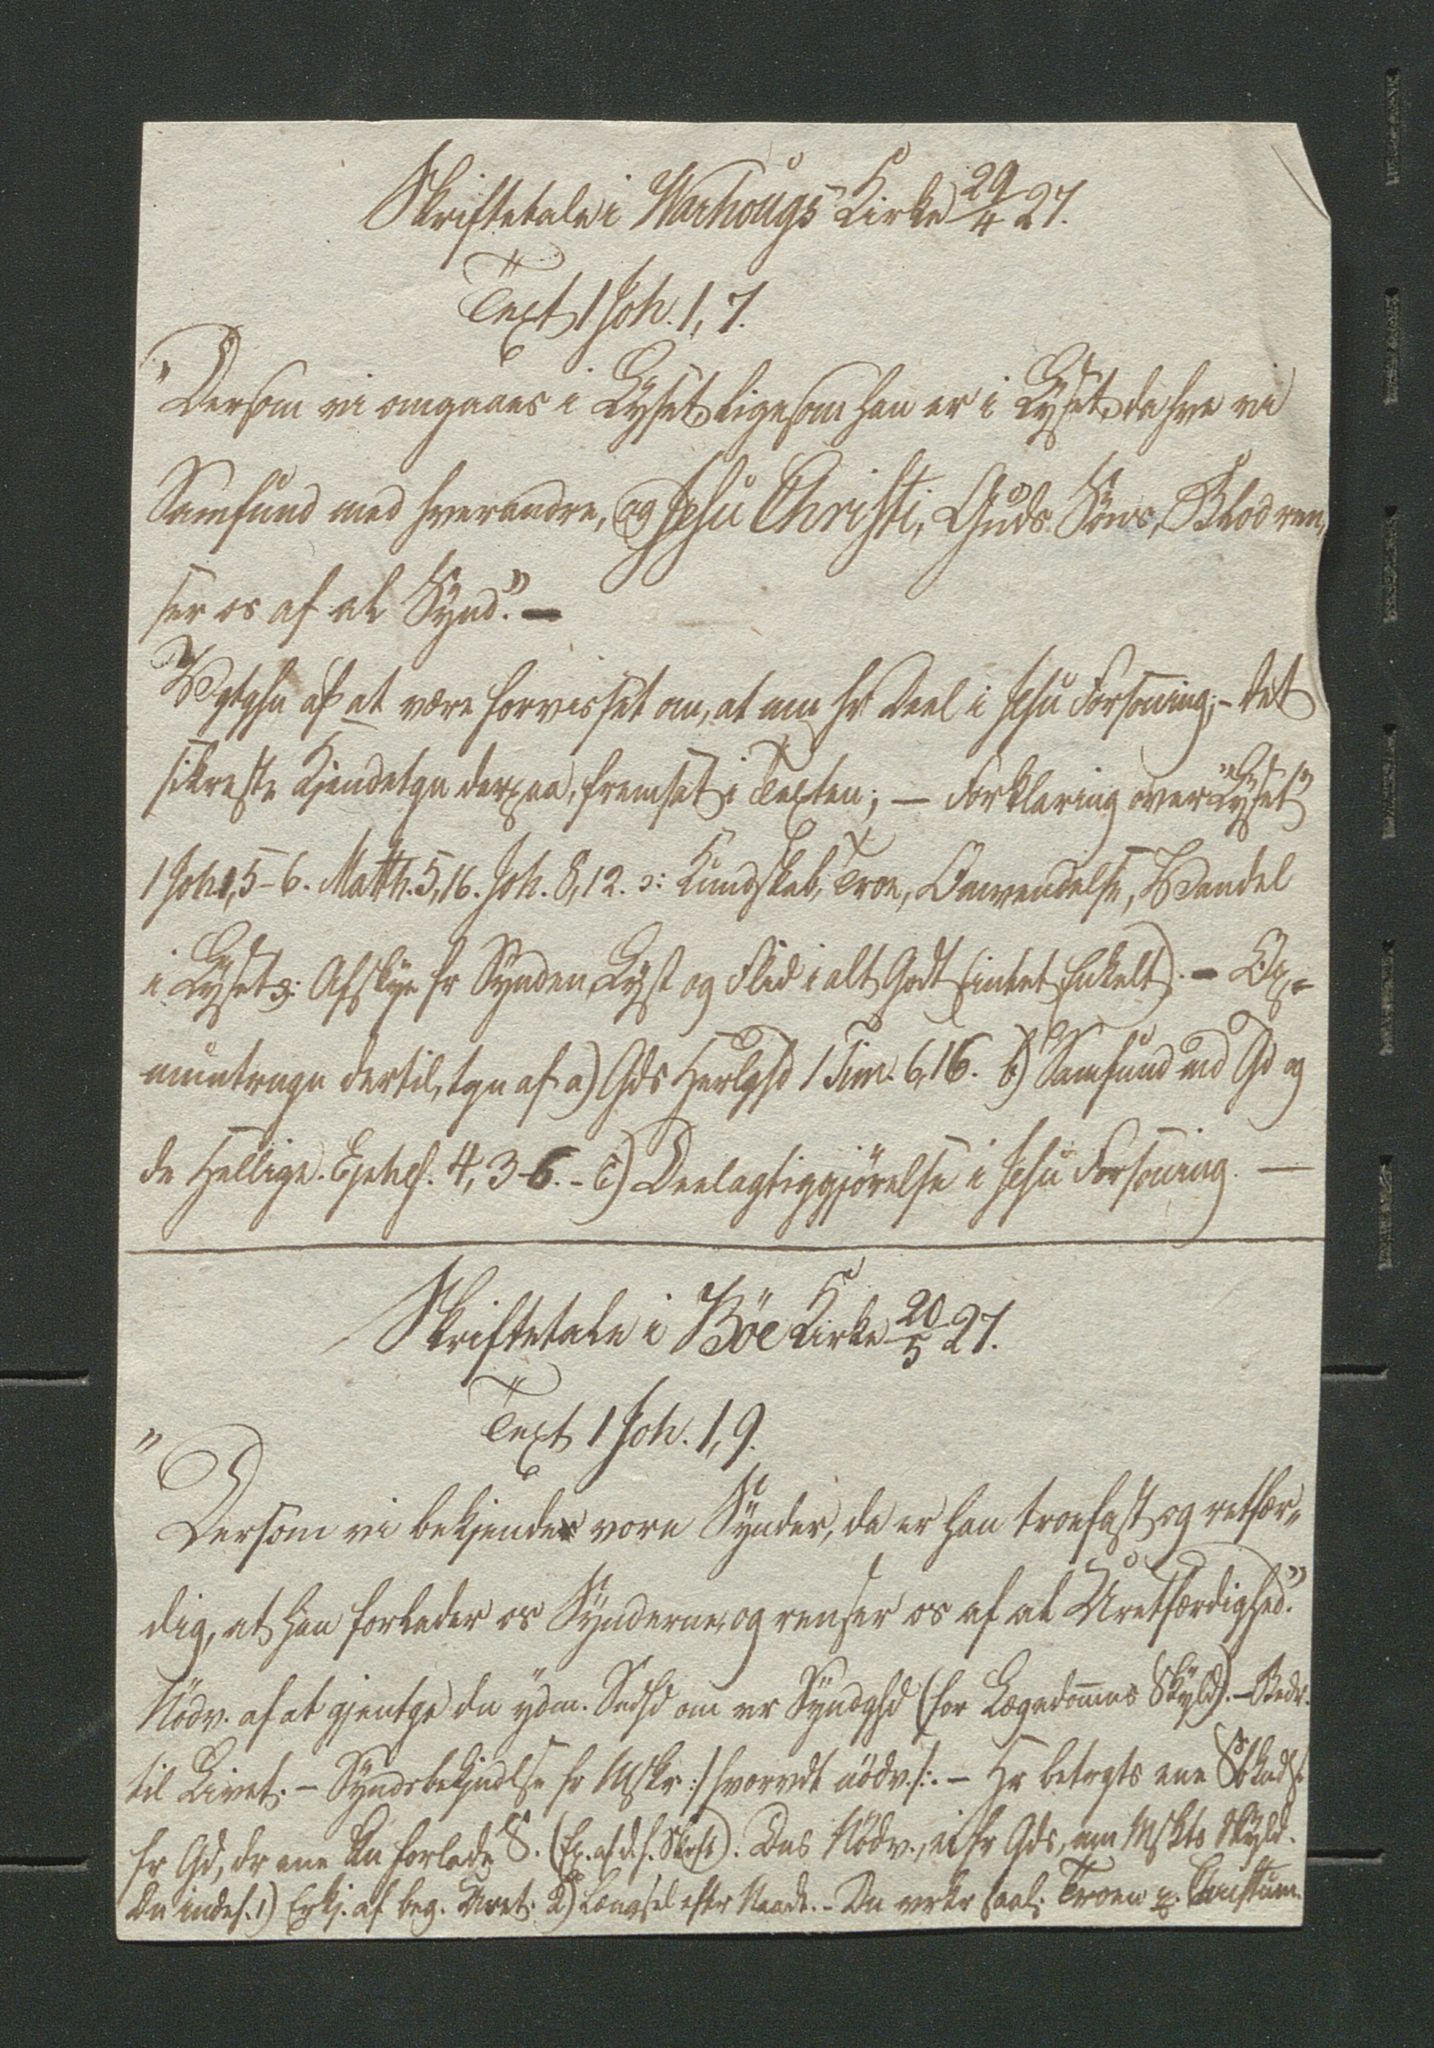 Skriftetale i Warhougs Kirke 29/4 27.
Text 1 Joh. 1, 7.
"Dersom vi omgaaes i Lyset, ligesom han er i Lyset, da hve vi
Samfund med hverandre, og Jesu Christi, Guds Søns, Blod ren„
ser os af al Synd." —
Vgtghn af at være forvisset om, at man hr Deel i Jesu Forsoning; - det
sikreste Kjendetgn derpaa, fremsat i Texten; — Forklaring over "Lyset"
1 Joh 1, 5-6. Matth. 5, 16. Joh. 8, 12. ɔ: Kundskab, Troe, Omvendelse, Vandel
i Lyset ɔ: Afskye fr Synden, Lyst og Flid i alt Godt (intet Enkelt). - Op„
muntrngn dertil, tgn af a) Gds Herlghd 1 Tim. 6, 16. b) Samfund md Gd og
de Hellige. Ephes. 4, 3-6. - c) Deelagtiggjørelse i Jesu Forsoning. —
Skriftetale i Böe Kirke 20/5 27.
Text 1 Joh. 1, 9.
"Dersom vi bekjende vore Synder, da er han troefast og retfær„
dig, at han forlader os Synderne, og renser os af al Uretfærdighed."
Nödv. af at gjentge dn ydm. Sndhd om vr Syndghd (for Lægedommens Skyld). - Bedr.
til Livet. - Syndsbekjndlse fr Mskr :/ hvorvdt nödv. /:. - Hr betrgts ene
fr Gd, dr ene kn forlade S. (Ex. af d. h. Skrft). Dns Nödv., ei fr Gds, mn Mskts Skyld.
Dn indeh. 1) Erkj. af beg. Uret. 2) Længsel eftr Naade. - Dn vrkr saal. Troen p. Christum.